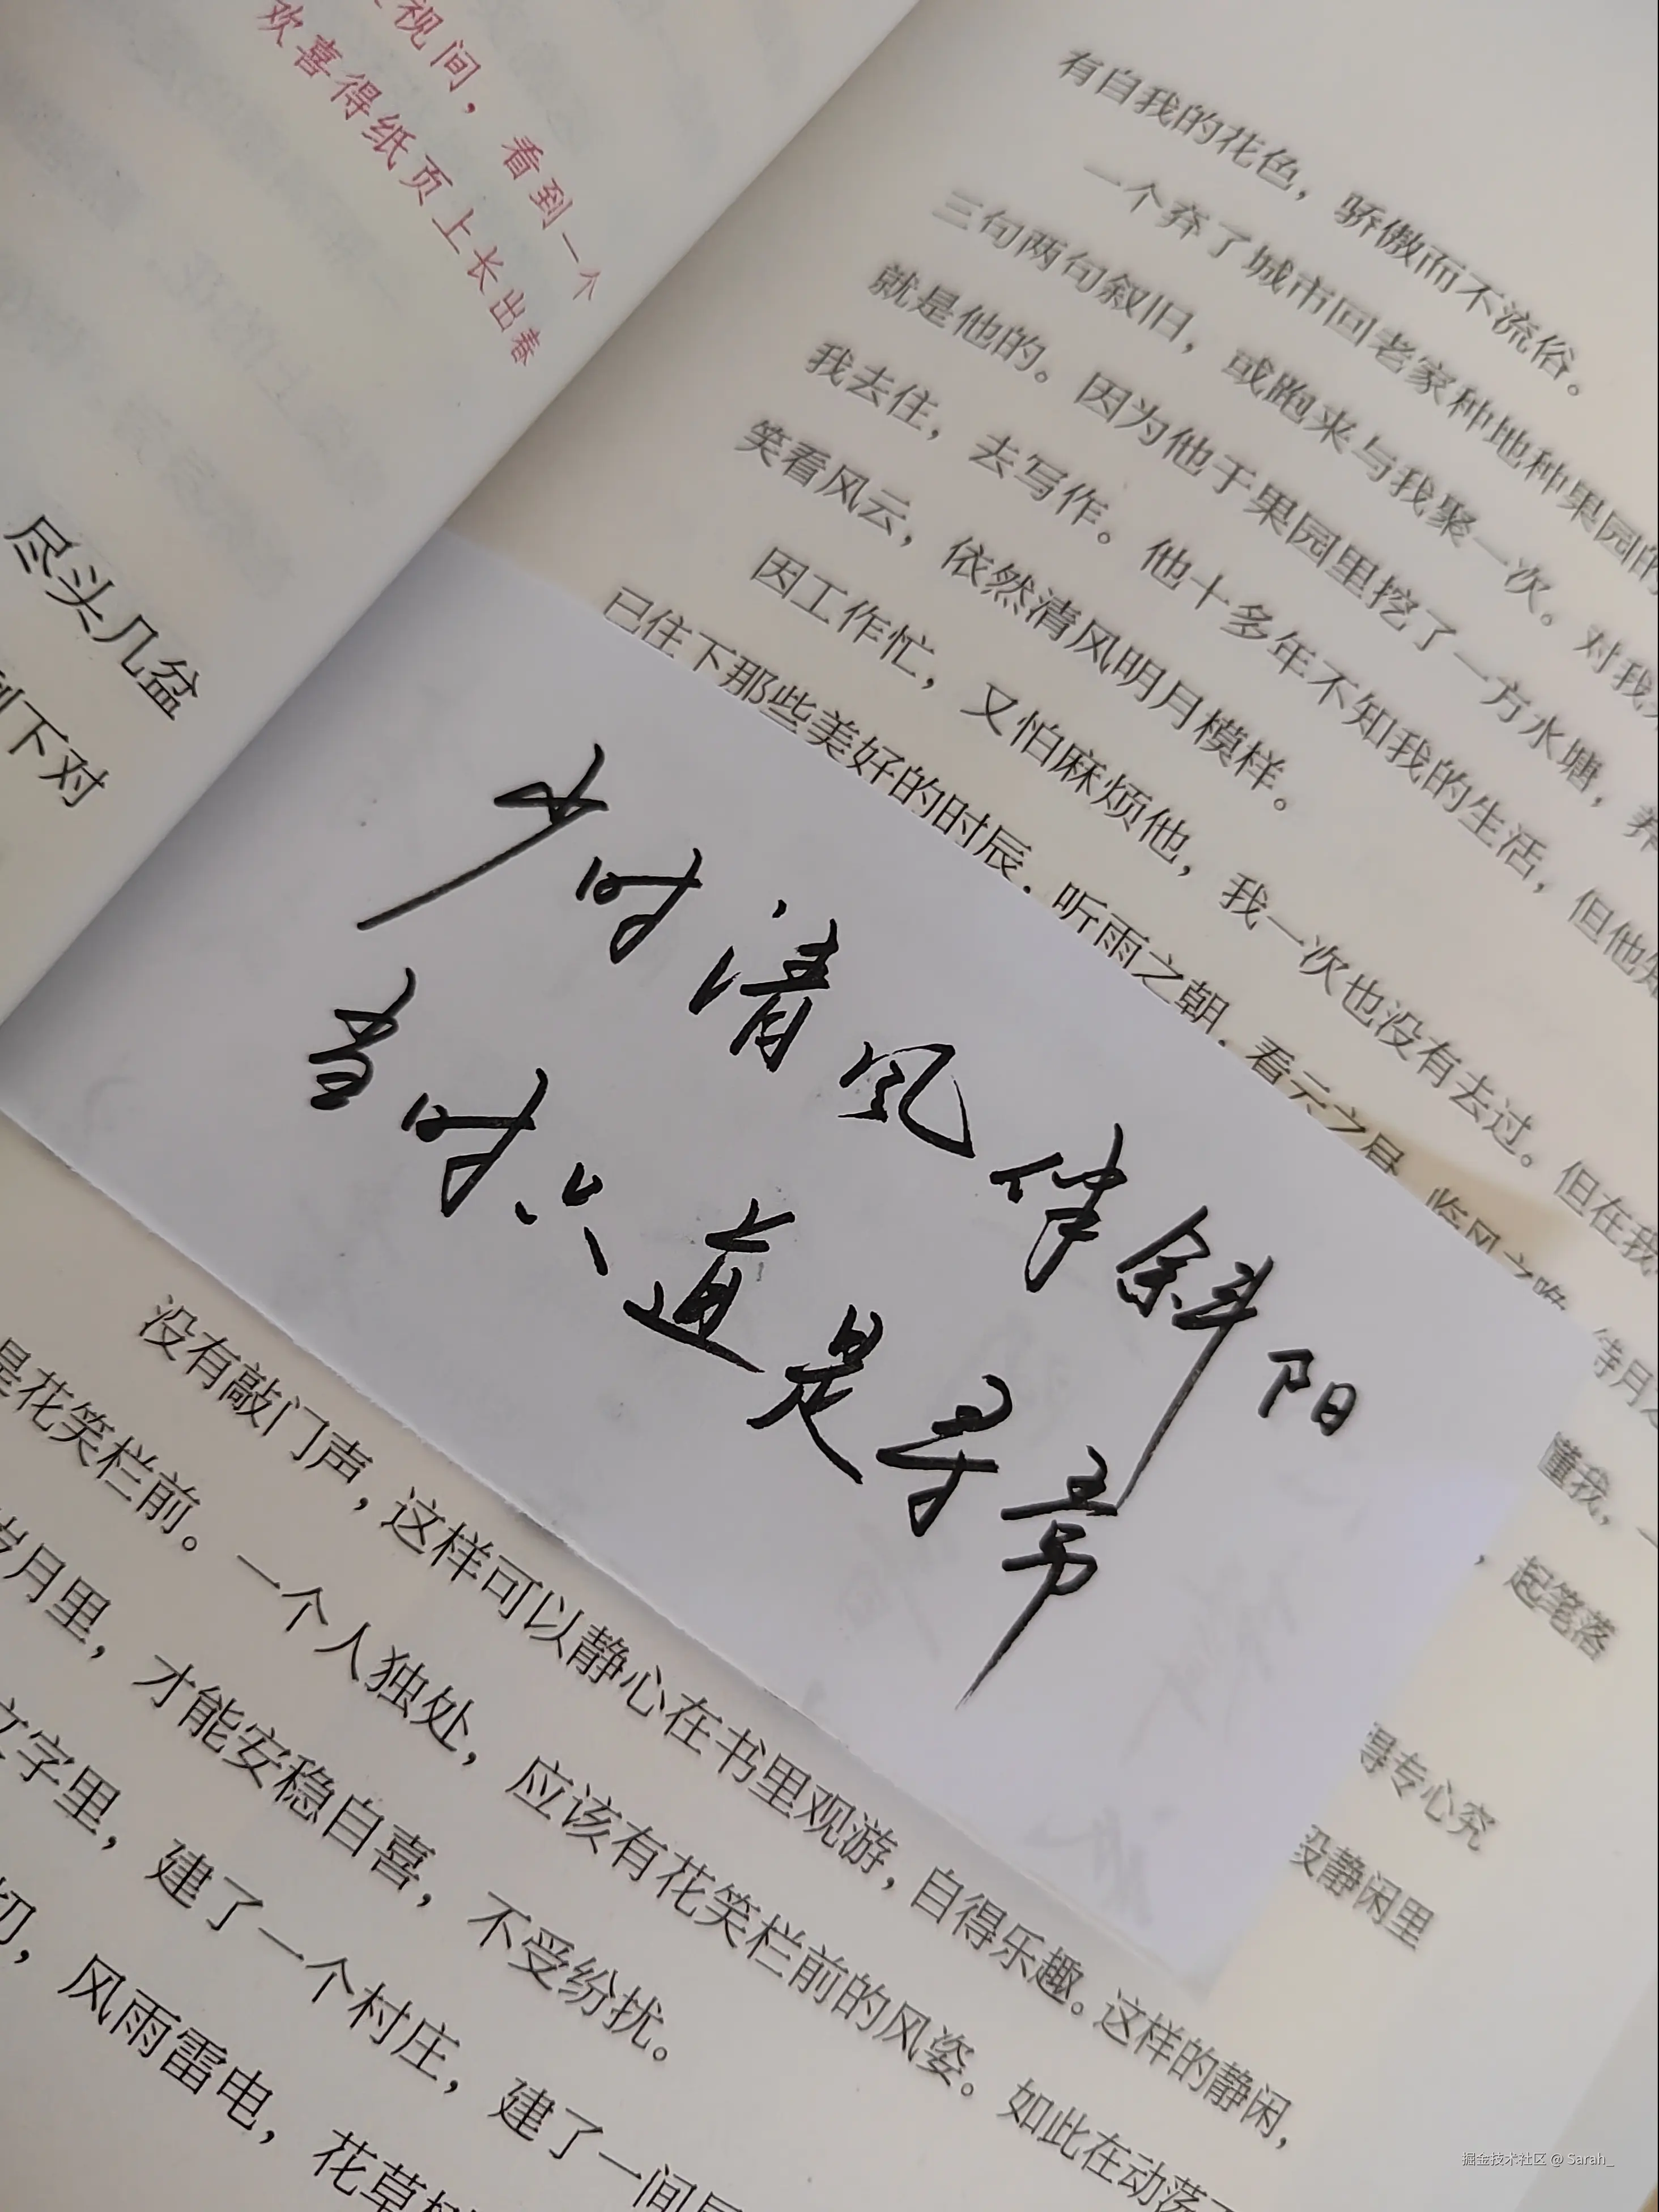 视间，看到一个
欢喜得纸页上长出春
尽头几盆
下对
有自我的花色，骄傲而不流俗。
一个弃了城市回老家种地种果园的
三句两句叙旧，或跑来与我聚一次。对我
就是他的。因为他于果园里挖了一方水塘，养
我去住，去写作。他十多年不知我的生活，但他知
笑看风云，依然清风明月模样。
因工作忙，又怕麻烦他，我一次也没有去过。但在我
已住下那些美好的时辰．听雨之朝．看云之昼．临风之晚
待月之
懂我，一
，起笔落
少时清风伴斜阳
当时只道是寻常
得专心究
没静闲里
没有敲门声，这样可以静心在书里观游，自得乐趣。这样的静闲，
是花笑栏前。一个人独处，应该有花笑栏前的风姿。如此在动荡
岁月里，才能安稳自喜，不受纷扰。
文字里，建了一个村庄，建了一间
切，风雨雷电，花草
掘金技术社区 @ Sarah_